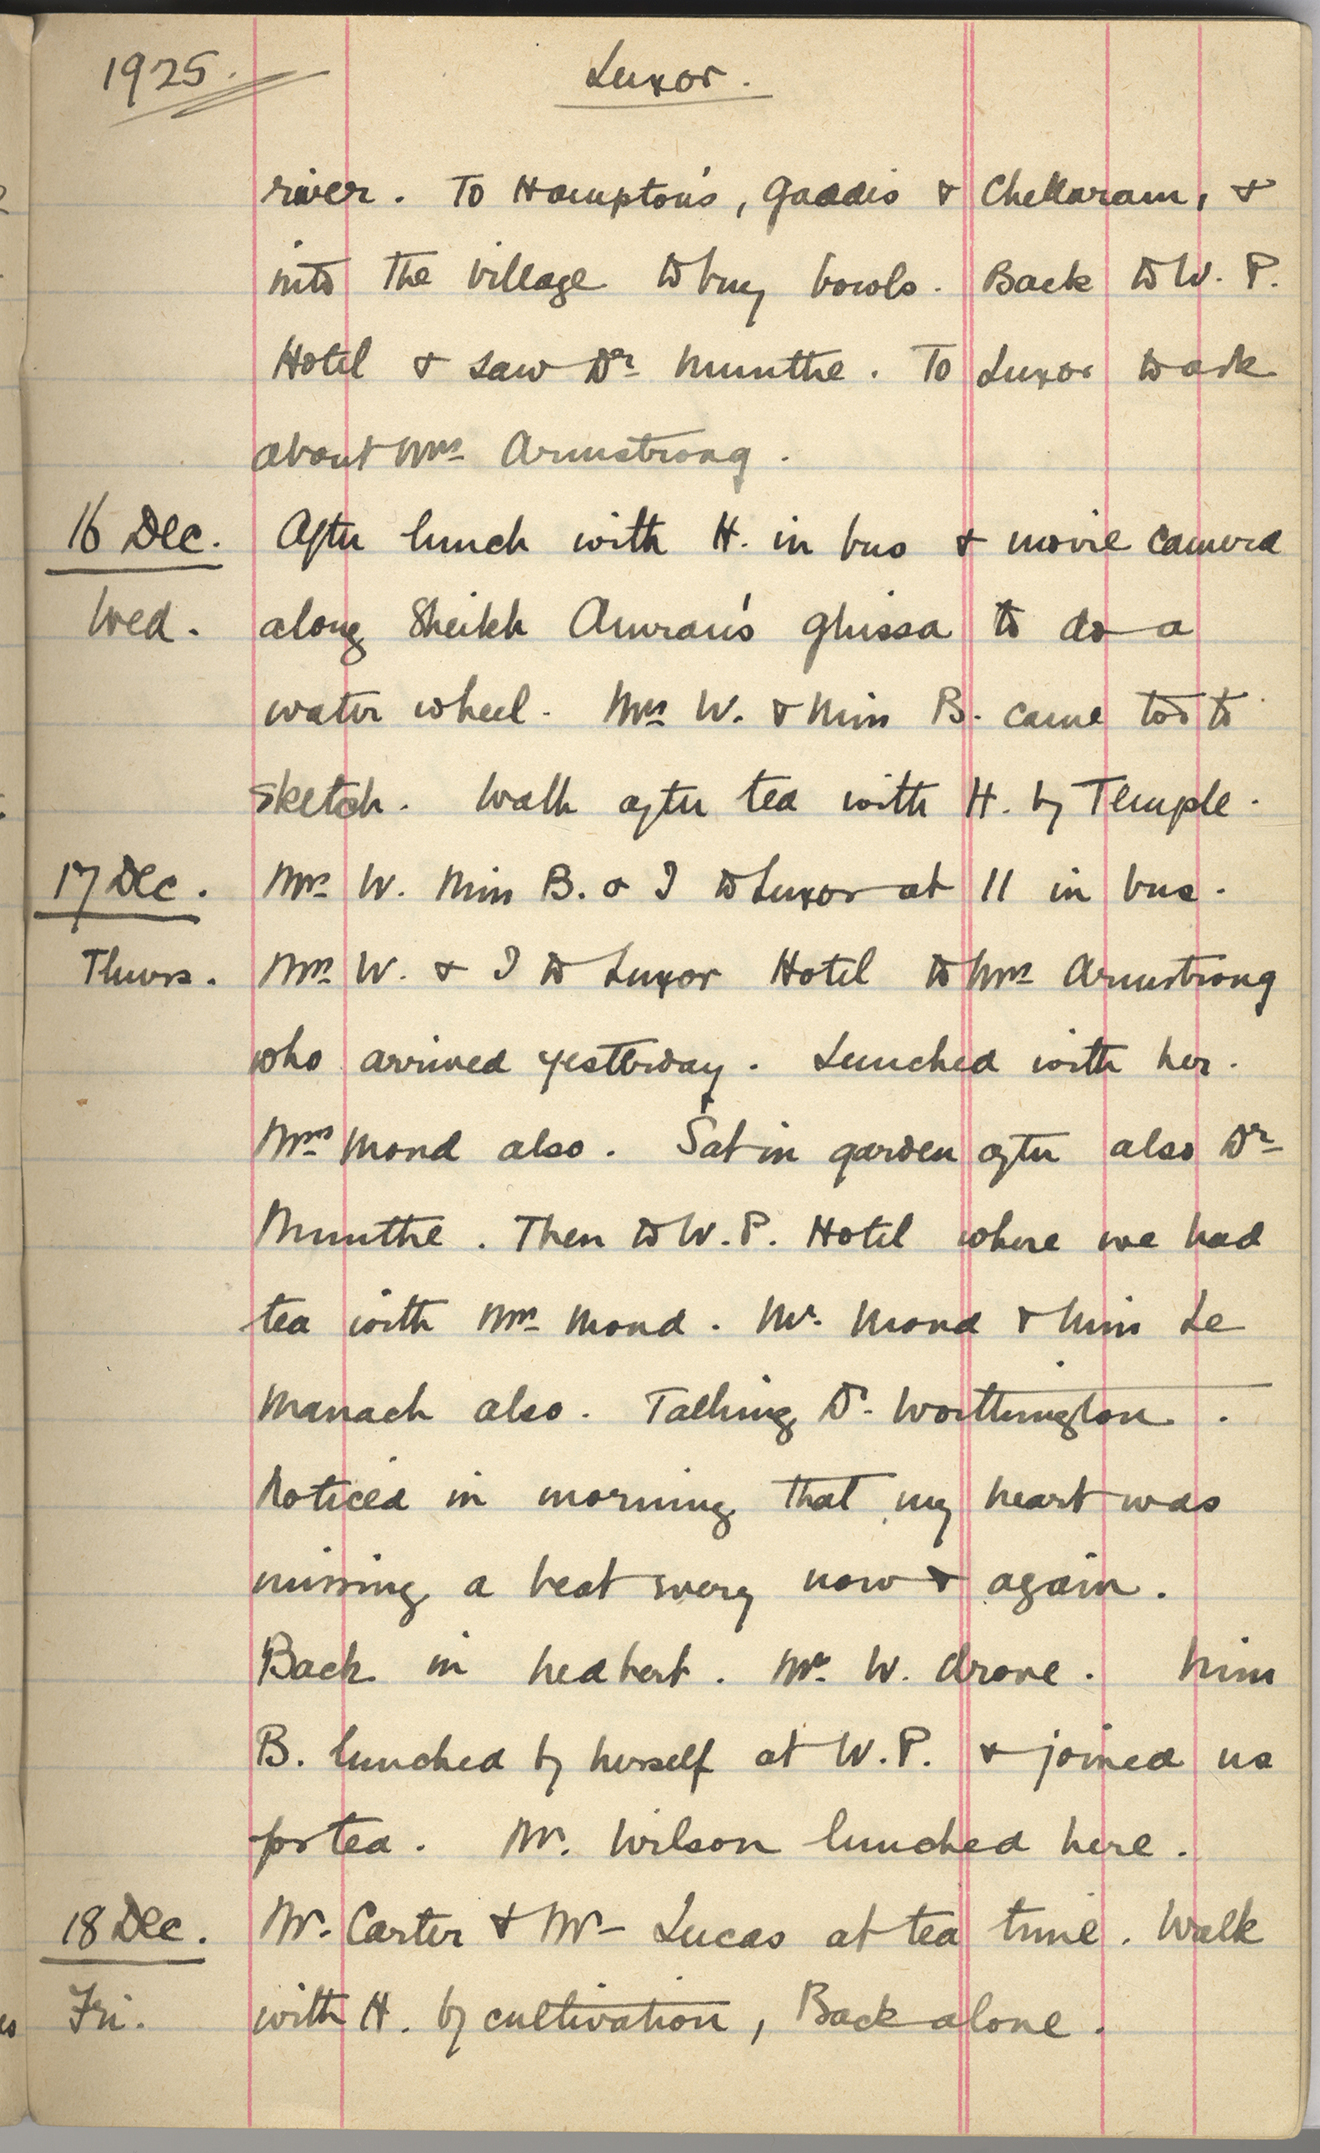 1925. Luxor.
river. To Hampton's, Gaddis & Chellaram, &
into the village to buy bowls. Back to W. P.
Hotel & saw Dr Munthe. To Luxor to ask
about Mrs Armstrong.
16 Dec. After lunch with H. in bus & movie camera
Wed. along Sheikh Omran's ghissa to do a
water wheel. Mrs W. & Miss B. came too to
sketch. Walk after tea with H. by Temple.
17 Dec. Mrs W. Miss B. & I to Luxor at 11 in bus.
Thurs. Mrs W. & I to Luxor Hotel to Mrs Armstrong
who arrived yesterday. Lunched with her.
Mrs Mond also. Sat in garden after also Dr
Munthe. Then to W. P. Hotel where we had
tea with Mrs Mond. Mr. Mond & Miss Le
Manach also. Talking Dr. Worthington.
Noticed in morning that my heart was
missing a beat every now & again.
Back in hedbert. Mr W. drove. Miss
B. lunched by herself at W. P. & joined us
for tea. Mr. Wilson lunched here.
18 Dec. Mr. Carter & Mr Lucas at tea time. Walk
Fri. with H. by cultivation, Back alone.